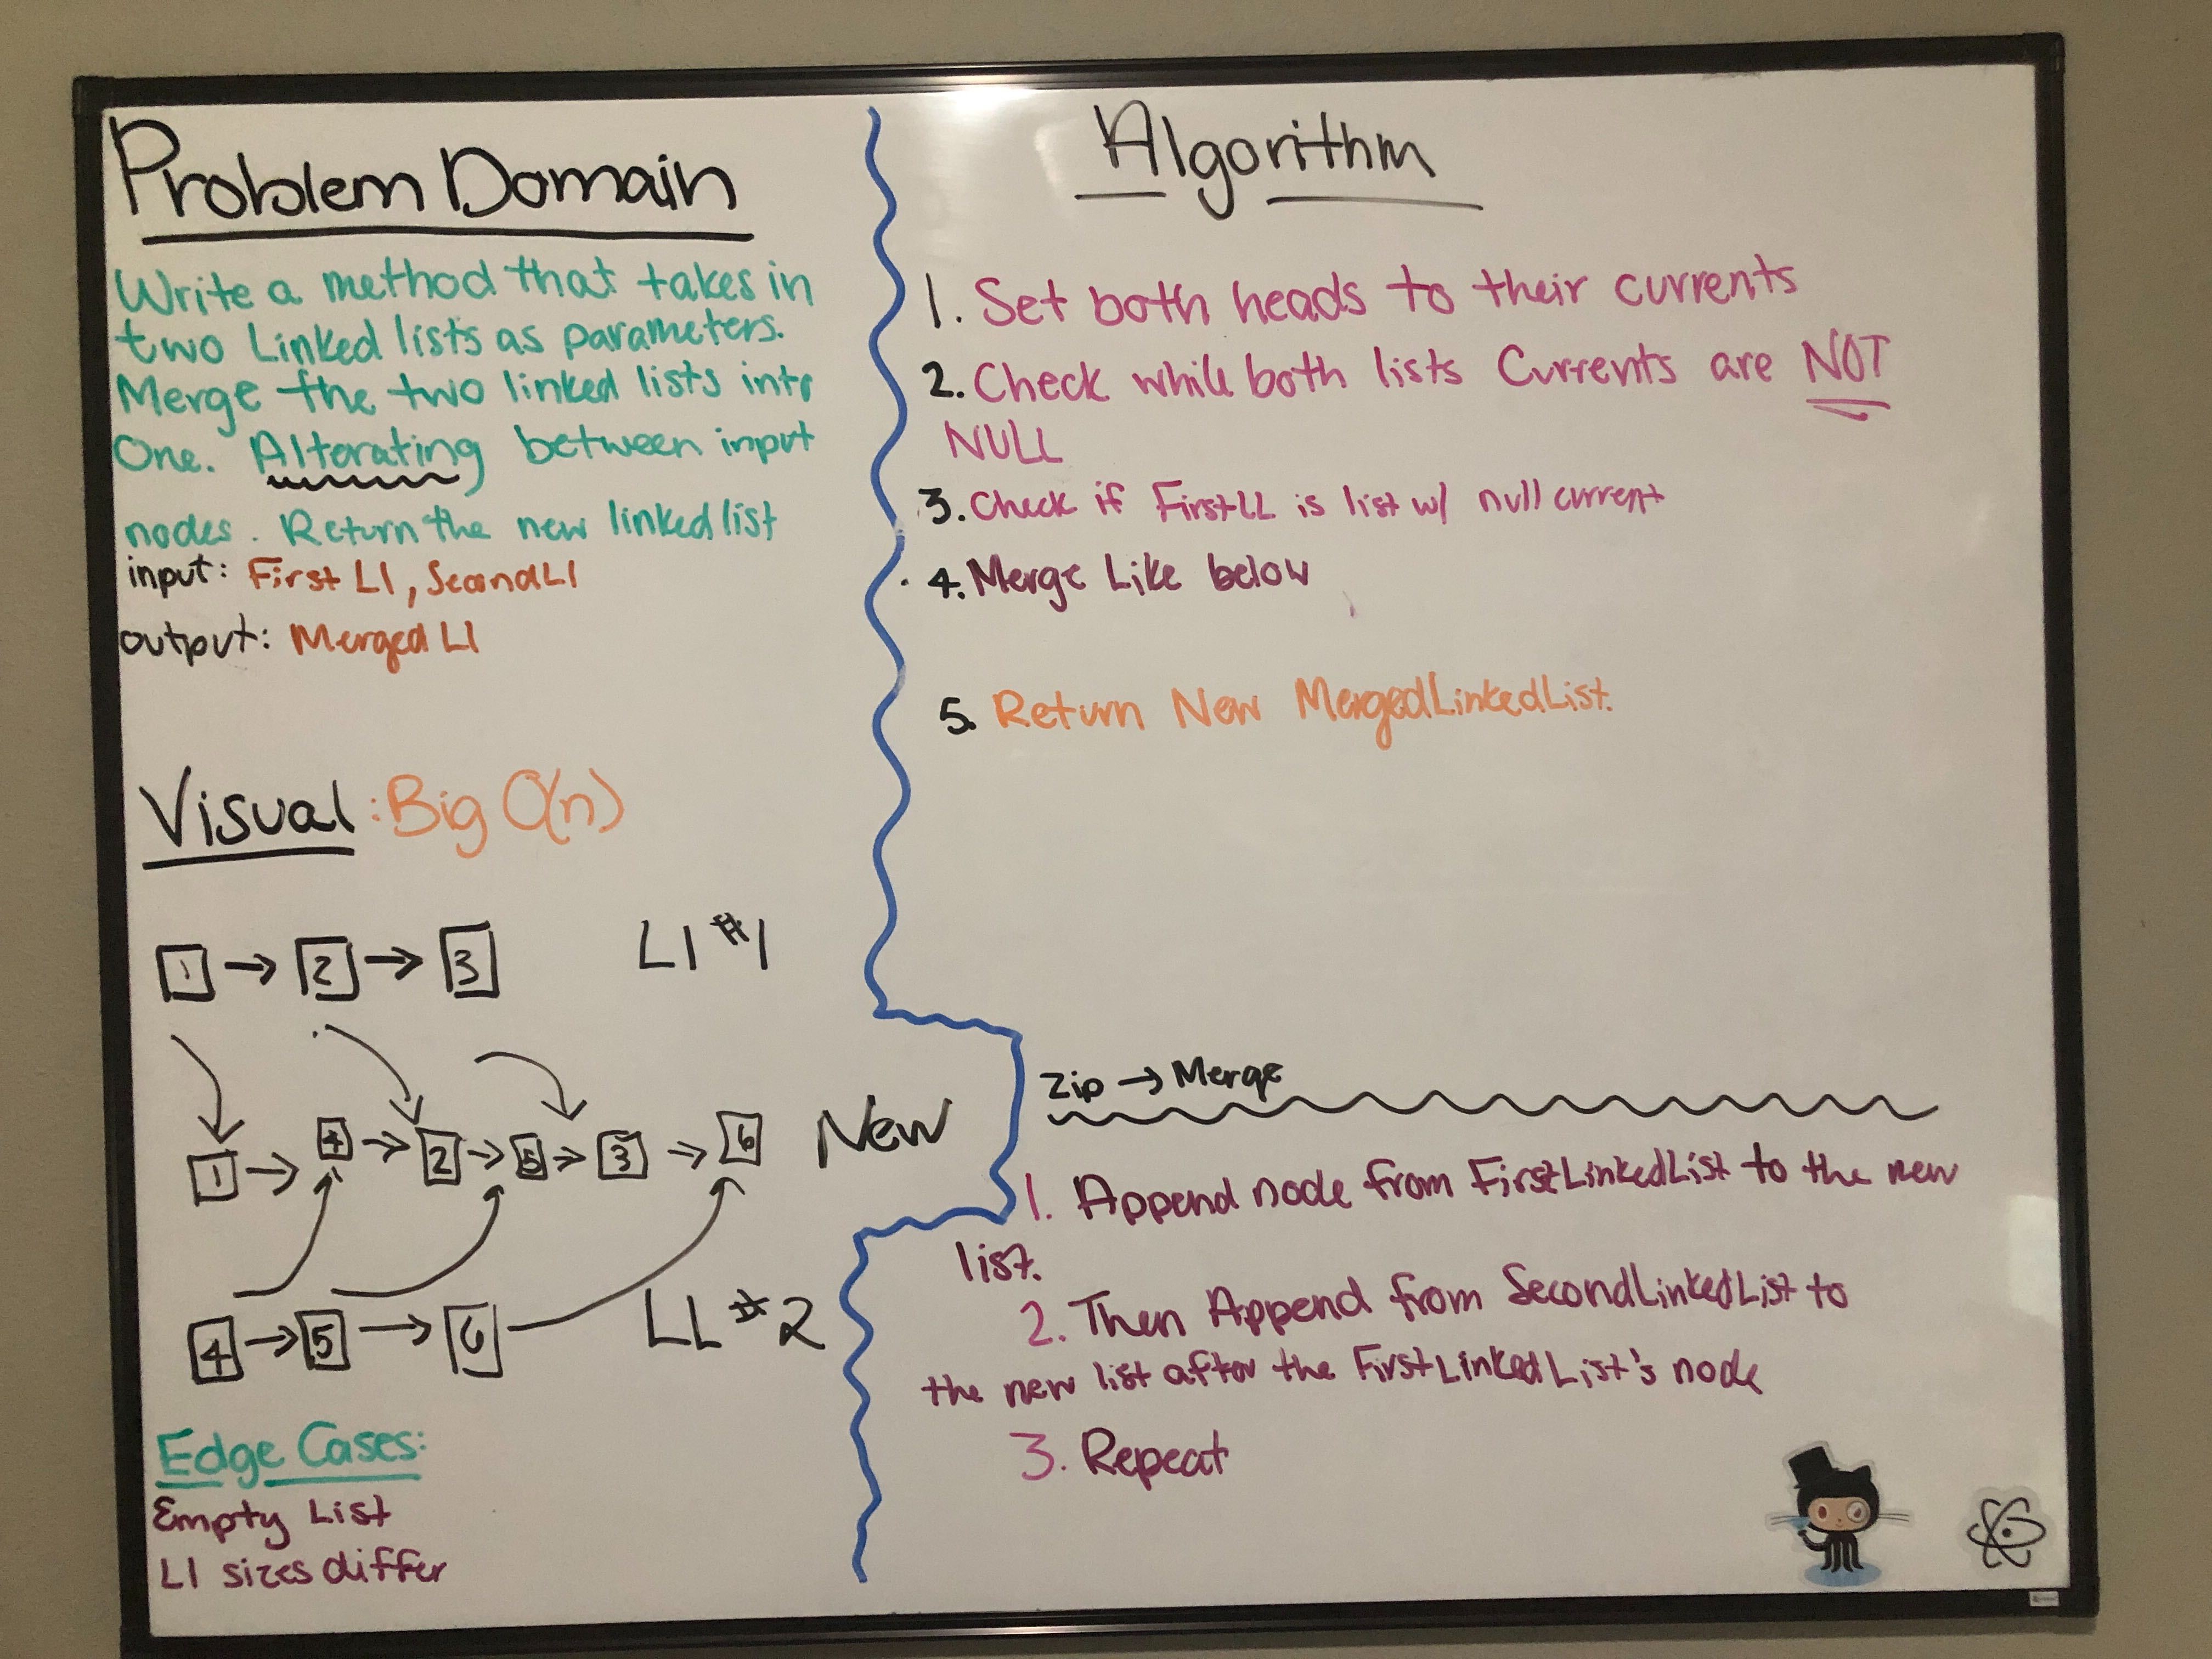 Problem Domain
Write a method that takes in
two Linked lists as parameters.
Merge the two linked lists into
One. Altorating between input
nodes. Return the new linked list
input: First LI, Second LI
output: Merged LI
Visual: Big O(n)
1 → 2 → 3 LI #1
1 → 4 → 2 → 5 → 3 → 6 New
4 → 5 → 6 LL #2
Edge Cases:
Empty List
LI sizes differ
Algorithm
1. Set both heads to their currents
2. Check while both lists Currents are NOT
NULL
3. Check if First LL is list w/ null current
4. Merge Like below
5. Return New MergedLinkedList.
Zip → Merge
1. Append node from FirstLinkedList to the new
list.
2. Then Append from SecondLinkedList to
the new list after the FirstLinkedList's node
3. Repeat